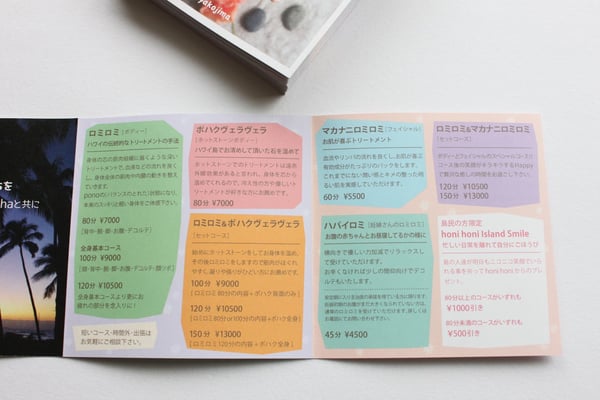 yakojima
を
haと共に
ロミロミ [ボディー]
ハワイの伝統的なトリートメントの手法
身体の芯の筋肉組織に届くような深い
トリートメントで、血液などの流れを良く
し、身体全体の筋肉や内臓の動きを整え
ていきます
pono(バランスのとれた)状態になり、
本来のスッキリと軽い身体をご体感下さい。
80分 ¥7000
[背中・腕・脚・お腹・デコルテ]
全身基本コース
100分 ¥9000
[頭・背中・腕・脚・お腹・デコルテ・顔ツボ]
120分 ¥10500
全身基本コースより更にお
疲れの部分を念入りに!
短いコース・時間外・出張は
お気軽にご相談下さい。
ポハクヴェラヴェラ
[ホットストーンボディー]
ハワイ島でお清めして頂いた石を温めて
ホットストーンでのトリートメントは遠赤
外線効果があると言われ、身体を芯から
温めてくれるので、冷え性の方や優しいト
リートメントが好きな方にお薦めです。
80分 ¥7000
ロミロミ&ポハクヴェラヴェラ
[セットコース]
始めにホットストーンをしてお身体を温め、
その後ロミロミをしますので筋肉がほぐれ
やすく、凝りや張りがひどい方にお薦めです。
100分 ¥9000
[ロミロミ 80分の内容+ポハク背面のみ]
120分 ¥10500
[ロミロミ80分or100分の内容+ポハク全身]
150分 ¥13000
[ロミロミ 120分の内容+ポハク全身]
マカナニロミロミ [フェイシャル]
お肌が喜ぶトリートメント
血流やリンパの流れを良くし、お肌が喜ぶ
有効成分がたっぷりのパックをします。
これまでに無い潤いとキメの整った明
るい肌を実感していただけます。
60分 ¥5500
ハパイロミ [妊婦さんのロミロミ]
お腹の赤ちゃんとお昼寝してるかの様に
横向きで優しい力加減でリラックスし
て受けていただけます。
お辛くなければ少しの間仰向けでデコ
ルテもいたします。
45分 ¥4500
ロミロミ&マカナニロミロミ
[セットコース]
ボディーとフェイシャルのスペシャルコース!!
コース後の笑顔がキラキラするHappy
で贅沢な癒しの時間をお過ごし下さい。
120分 ¥10500
150分 ¥13500
島民の方限定
honi honi Island Smile
忙しい日常を離れて自分にごほうび
島の人達が明日もニコニコ笑顔でいら
れる事を祈って honi honi からのプレ
ゼント。
80分以上のコースがいずれも
¥1000引き
80分未満のコースがいずれも
¥500引き